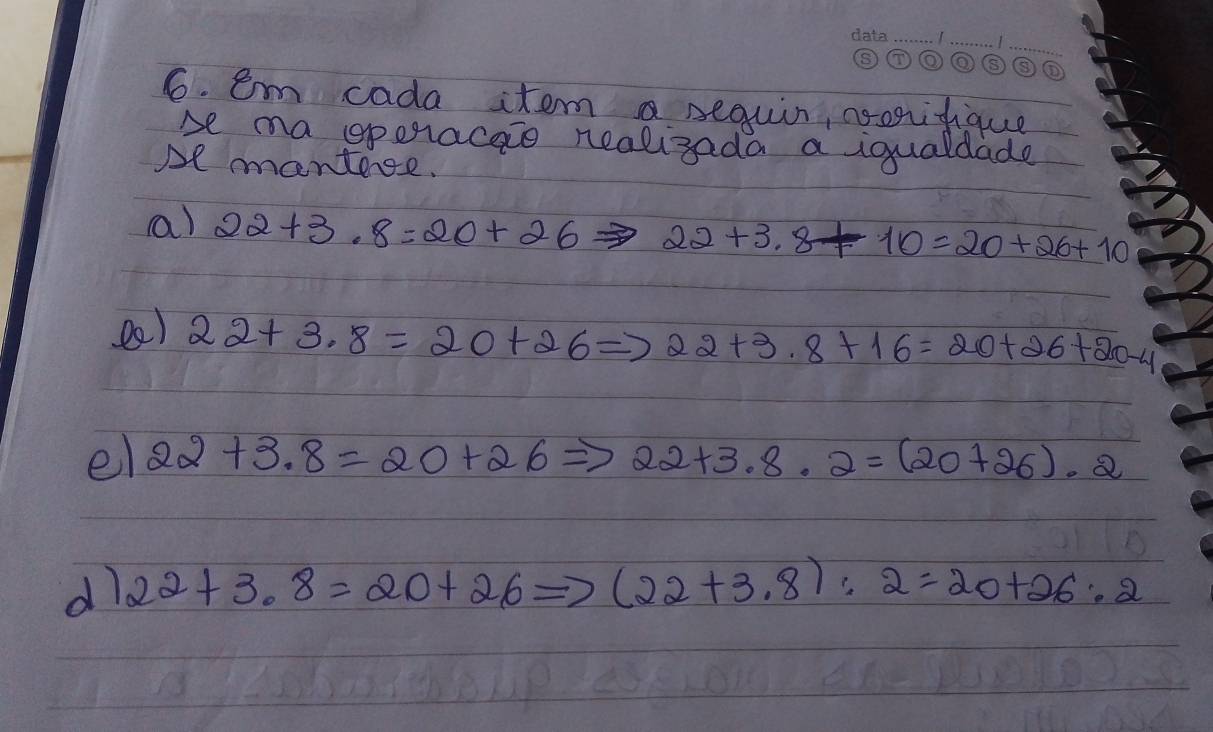 data ....... / ....... / .......
S T Q Q S S D
6. Em cada item a seguir, verifique
se na operação realizada a igualdade
se manteve.
a) 22+3.8=20+26 => 22+3.8+10=20+26+10
b) 22+3.8=20+26=>22+3.8+16=20+26+20-4
c) 22+3.8=20+26=>22+3.8.2=(20+26).2
d) 22+3.8=20+26=>(22+3.8):2=20+26:2